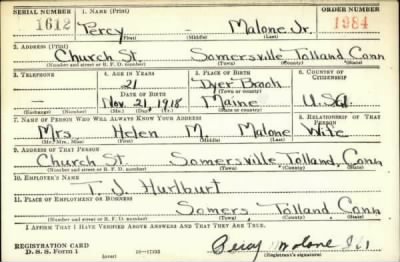 SERIAL NUMBER 1. NAME (Print) ORDER NUMBER
1612 Percy - Malone, Jr. 1984
(First) (Middle) (Last)
2. ADDRESS (Print)
Church St. Somersville Tolland Conn
(Number and street or R. F. D. number) (Town) (County) (State)
3. TELEPHONE 4. AGE IN YEARS 5. PLACE OF BIRTH 6. COUNTRY OF CITIZENSHIP
21 Dyer Brook
DATE OF BIRTH (Town or county)
- Nov. 21, 1918 Maine U.S.A.
(Exchange) (Number) (Mo.) (Day) (Yr.) (State or country)
7. NAME OF PERSON WHO WILL ALWAYS KNOW YOUR ADDRESS 8. RELATIONSHIP OF THAT PERSON
Mrs. Helen M. Malone Wife
(Mr., Mrs., Miss) (First) (Middle) (Last)
9. ADDRESS OF THAT PERSON
Church St. Somersville, Tolland, Conn
(Number and street or R. F. D. number) (Town) (County) (State)
10. EMPLOYER'S NAME
T. J. Hurlburt
11. PLACE OF EMPLOYMENT OR BUSINESS
Somers, Tolland, Conn
(Number and street or R. F. D. number) (Town) (County) (State)
I AFFIRM THAT I HAVE VERIFIED ABOVE ANSWERS AND THAT THEY ARE TRUE.
REGISTRATION CARD
D. S. S. Form 1 (over) Percy Malone Jr.
(Registrant's signature)